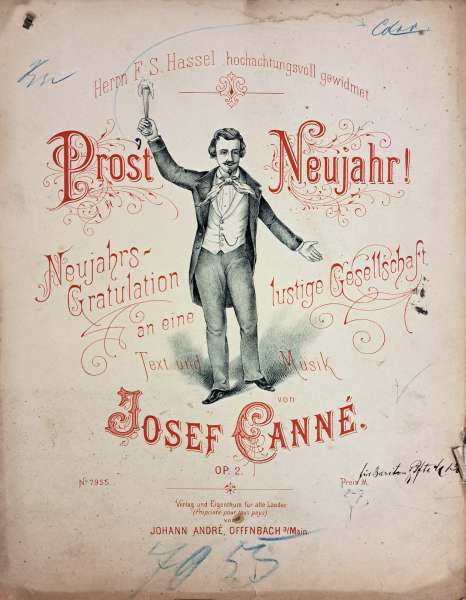 Herrn F. S. Hassel hochachtungsvoll gewidmet
Pros't Neujahr!
Neujahrs-
Gratulation
an eine lustige Gesellschaft
Text und Musik
von
JOSEF CANNÉ.
OP. 2.
No 7955.
Preis M.
Verlag und Eigenthum für alle Länder
(Propriété pour tous pays)
von
JOHANN ANDRÉ, OFFENBACH a/Main.
7955